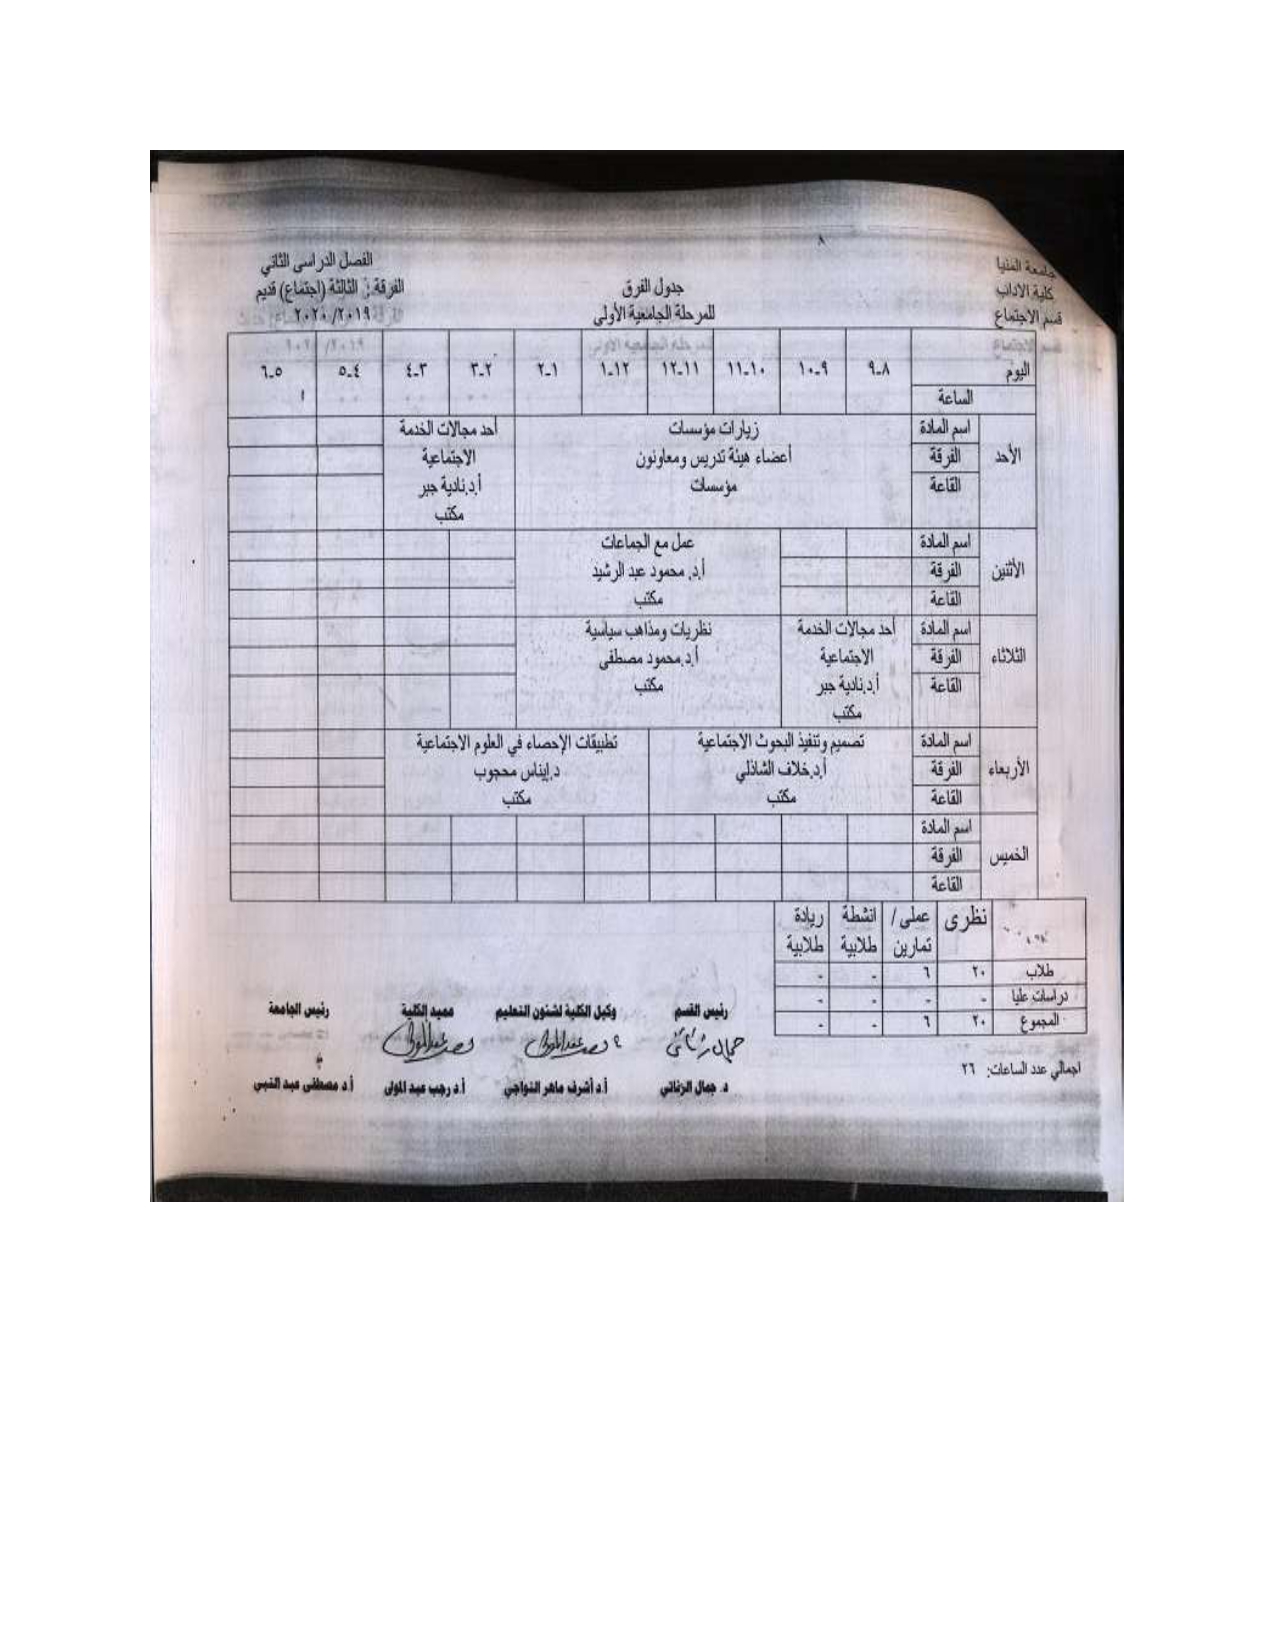 ٨
جامعة المنيا
كلية الاداب
قسم الاجتماع
جدول الفرق
للمرحلة الجامعية الأولى
الفصل الدراسى الثاني
الفرقة: الثالثة (اجتماع) قديم
٢٠١٩/ ٢٠٢٠
اليوم ٨-٩ ٩-١٠ ١٠-١١ ١١-١٢ ١٢-١ ١-٢ ٢-٣ ٣-٤ ٤-٥ ٥-٦
الساعة
الأحد
اسم المادة
الفرقة
القاعة
زيارات مؤسسات
أعضاء هيئة تدريس ومعاونون
مؤسسات
أحد مجالات الخدمة
الاجتماعية
أ.د.نادية جبر
مكتب
الأثنين
اسم المادة
الفرقة
القاعة
عمل مع الجماعات
أ.د. محمود عبد الرشيد
مكتب
الثلاثاء
اسم المادة
الفرقة
القاعة
أحد مجالات الخدمة
الاجتماعية
أ.د.نادية جبر
مكتب
نظريات ومذاهب سياسية
أ.د.محمود مصطفى
مكتب
الأربعاء
اسم المادة
الفرقة
القاعة
تصميم وتنفيذ البحوث الاجتماعية
أ.د.خلاف الشاذلي
مكتب
تطبيقات الإحصاء في العلوم الاجتماعية
د.إيناس محجوب
مكتب
الخميس
اسم المادة
الفرقة
القاعة
نظرى عملى/ انشطة ريادة
تمارين طلابية طلابية
طلاب ٢٠ ٦ - -
دراسات عليا - - - -
المجموع ٢٠ ٦ - -
اجمالي عدد الساعات: ٢٦
رئيس القسم وكيل الكلية لشئون التعليم عميد الكلية رئيس الجامعة
د. جمال الزناتي أ.د أشرف ماهر النواجي أ.د رجب عبد المولى أ.د مصطفى عبد النبى